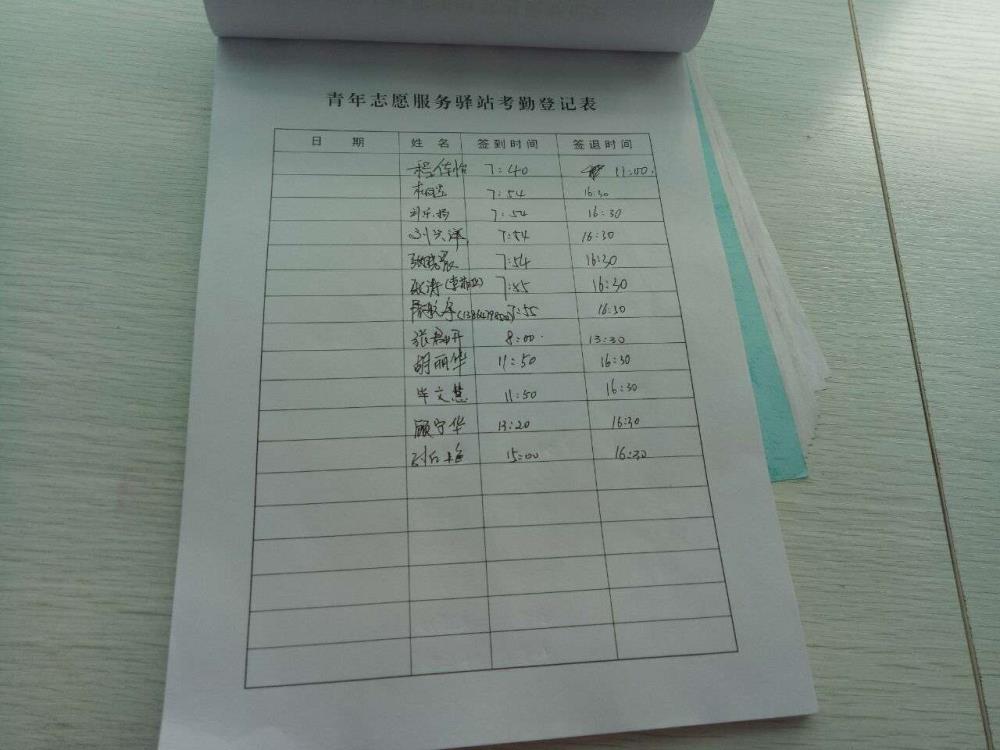 青年志愿服务驿站考勤登记表
日 期 姓 名 签到时间 签退时间
程佳怡 7:40 11:00.
7:54 16:30
7:54 16:30
刘兴泽 7:54 16:30
张晓晨 7:54 16:30
涛 7:55 16:30
7:55 16:30
张 8:00. 13:30
胡丽华 11:50 16:30
毕文慧 11:50 16:30
顾宁华 13:20 16:30
刘 15:00 16:30